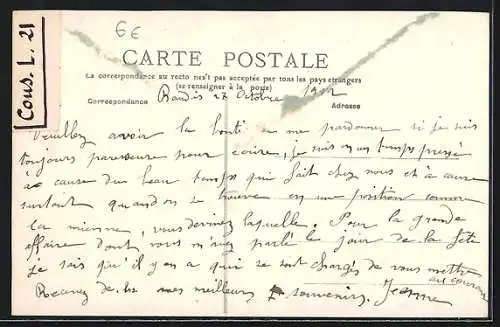 6€
Cons. L. 21
CARTE POSTALE
La correspondance au recto n'est pas acceptée par tous les pays étrangers
(se renseigner à la poste)
Correspondance
Adresse
27 Octobre 1912
Veuillez avoir la bonté de me pardonner si je suis
toujours paresseuse pour écrire, je suis un temps pressé
à cause du beau temps qui fait chez nous et à cause
surtout quand on se trouve en une position comme
la mienne, vous devinez laquelle. Pour la grande
affaire dont vous m'avez parlé le jour de la fête
je sais qu'il y en a qui se sont chargés de vous mettre
au courant
Recevez de mes meilleurs souvenirs. Jeanne